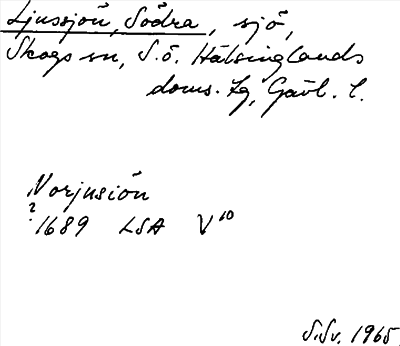 Ljussjön, Södra, sjö,
Skogs sn, S.ö. Hälsinglands
doms. tg, Gävl. l.
Norjusiön
?
1689 LSA V10
S.Sv. 1965.